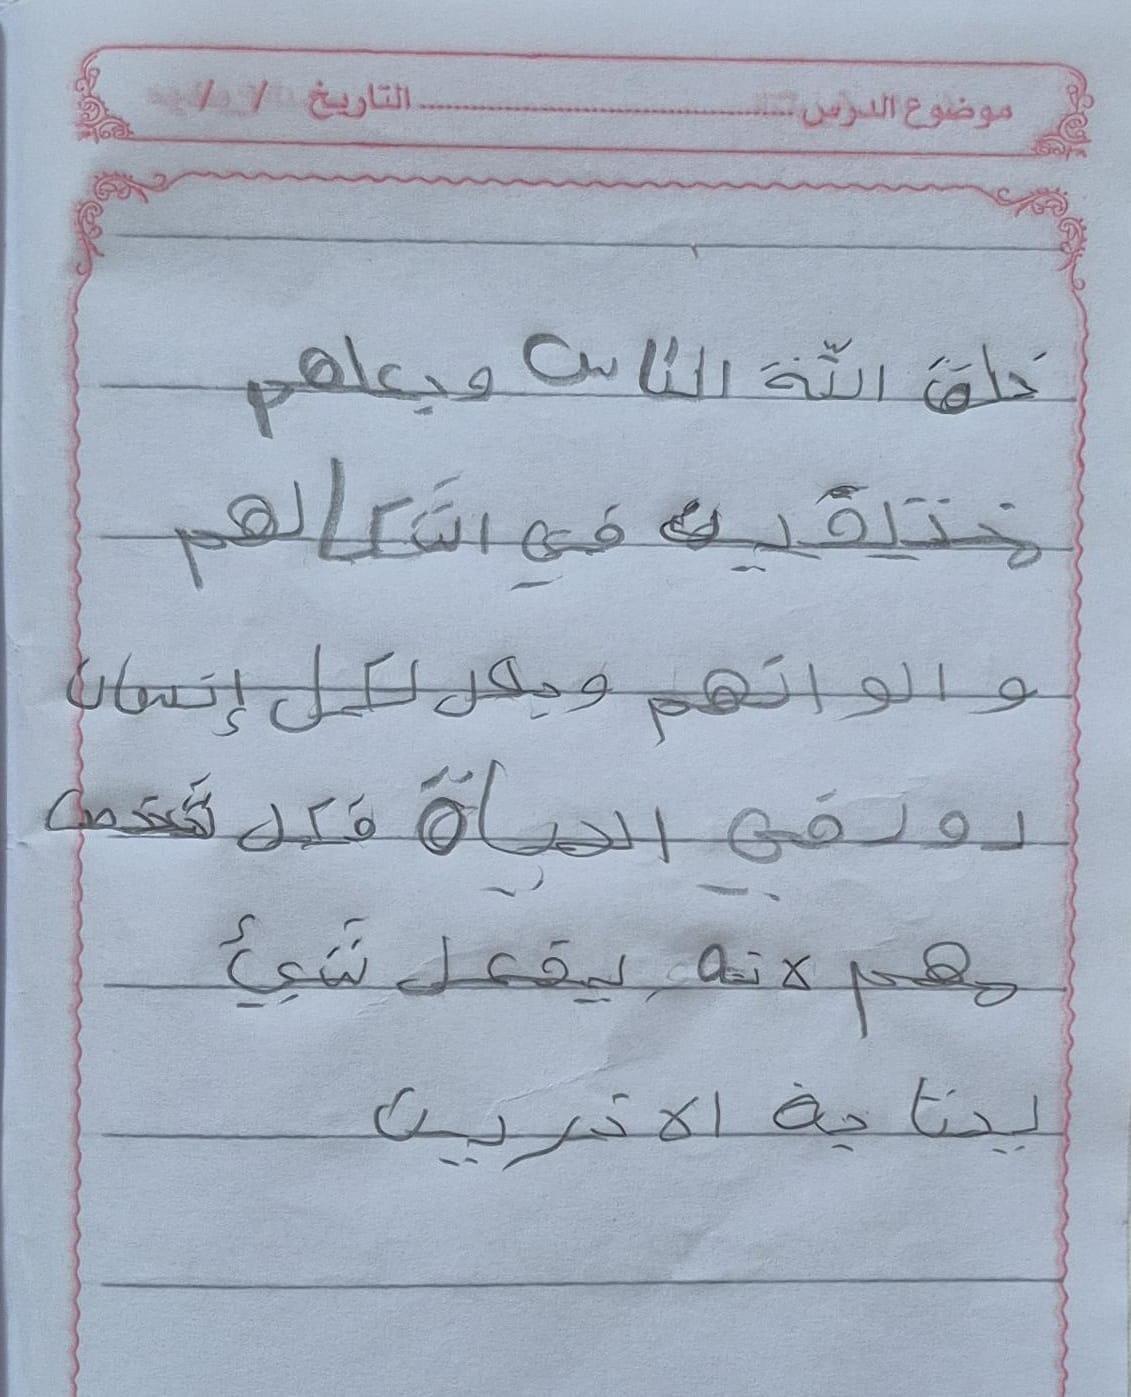 موضوع الدرس ........................ التاريخ / /
خلق الله الناس وجعلهم
مختلفين في اشكالهم
والوانهم وجعل لكل إنسان
دور في الحياة فكل شخص
مهم لانه يفعل شيئ
يحتاجه الاخرين